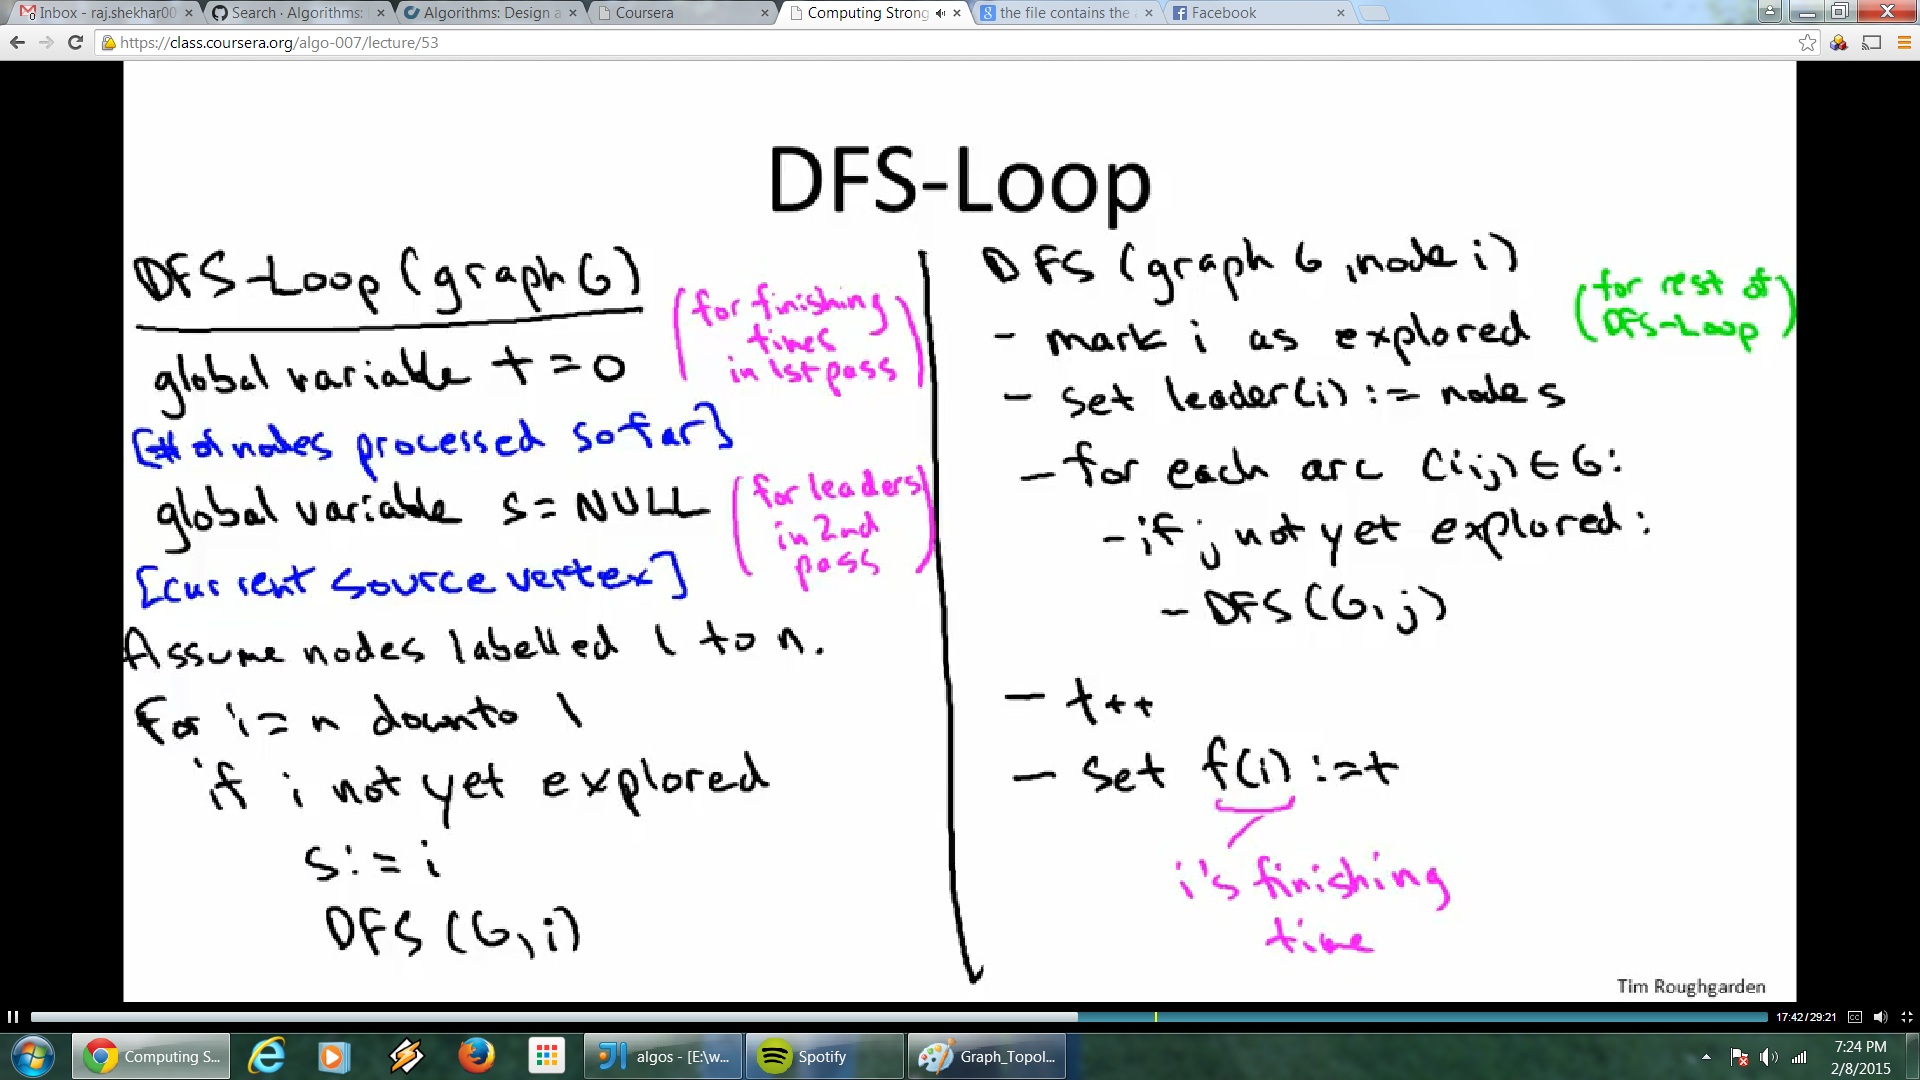 Inbox - raj.shekhar00
Search · Algorithms:
Algorithms: Design a
Coursera
Computing Strong
the file contains the
Facebook
https://class.coursera.org/algo-007/lecture/53
DFS-Loop
DFS-Loop (graph G)
(for finishing
times
in 1st pass)
global variable t = 0
[# of nodes processed so far]
global variable s = NULL
(for leaders
in 2nd
pass)
[current source vertex]
Assume nodes labelled 1 to n.
For i = n down to 1
if i not yet explored
s := i
DFS (G, i)
DFS (graph G, node i)
- mark i as explored
(for rest of
DFS-Loop)
- set leader(i) := node s
- for each arc (i,j) ∈ G:
- if j not yet explored:
- DFS (G, j)
- t++
- set f(i) := t
i's finishing
time
Tim Roughgarden
17:42/29:21
CC
Computing S...
algos - [E:\w...
Spotify
Graph_Topol...
7:24 PM
2/8/2015